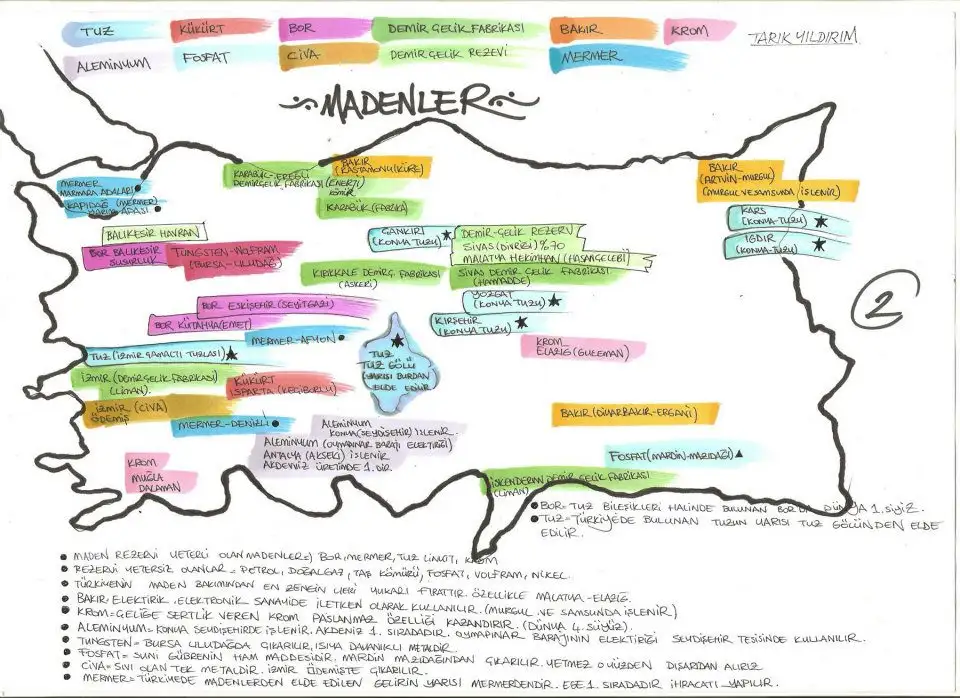 TUZ
KÜKÜRT
BOR
DEMİR ÇELİK FABRİKASI
BAKIR
KROM
TARIK YILDIRIM
ALEMİNYUM
FOSFAT
CİVA
DEMİR ÇELİK REZEVİ
MERMER
MADENLER
MERMER
MARMARA ADALARI
KAPIDAĞ (MERMER)
KARABÜK-EREĞLİ
DEMİRÇELİK FABRİKASI (ENERJİ)
KÖMÜR
BAKIR
(KASTAMONU/KÜRE)
KARABÜK (FABRİKA)
BAKIR
(ARTVİN-MURGUL)
(MURGUL VE SAMSUNDA İŞLENİR)
KARS
(KONYA TUZU)
IĞDIR
(KONYA TUZU)
BALIKESİR HAVRAN
BOR BALIKESİR
SUSURLUK
TUNGSTEN-WOLFRAM
(BURSA-ULUDAĞ)
ÇANKIRI
(KONYA TUZU)
DEMİR-ÇELİK REZERV
SİVAS (DİVRİĞİ) %70
MALATYA HEKİMHAN (HASANÇELEBİ)
SİVAS DEMİR ÇELİK FABRİKASI
(HAMMADDE)
KIRIKKALE DEMİRÇ. FABRİKASI
(ASKERİ)
YOZGAT
(KONYA TUZU)
KIRŞEHİR
(KONYA TUZU)
BOR ESKİŞEHİR (SEYİTGAZİ)
BOR KÜTAHYA (EMET)
MERMER-AFYON
KROM
ELAZIĞ (GULEMAN)
TUZ (İZMİR ÇAMALTI TUZLASI)
TUZ
TUZ GÖLÜ
(YARISI BURDAN
ELDE EDİLİR
İZMİR (DEMİRÇELİK FABRİKASI)
(LİMAN).
KÜKÜRT
ISPARTA (KEÇİBORLU)
İZMİR (CİVA)
ÖDEMİŞ
MERMER-DENİZLİ
BAKIR (DİYARBAKIR-ERGANİ)
ALEMİNYUM
KONYA (SEYDİŞEHİR) İŞLENİR.
ALEMİNYUM (OYMAPINAR BARAJI ELEKTİRİĞİ)
ANTALYA (AKSEKİ) İŞLENİR
AKDENİZ ÜRETİMDE 1. DİR.
KROM
MUĞLA
DALAMAN
FOSFAT (MARDİN-MAZIDAĞI)
İSKENDERUN DEMİR ÇELİK FABRİKASI
(LİMAN)
2
BOR= TUZ BİLEŞİKLERİ HALİNDE BULUNAN BOR DA DÜNYA 1. SİYİZ.
TUZ= TÜRKİYEDE BULUNAN TUZUN YARISI TUZ GÖLÜNDEN ELDE
EDİLİR.
MADEN REZERVİ YETERLİ OLAN MADENLER=) BOR, MERMER, TUZ LİNYİT, KROM
REZERVİ YETERSİZ OLANLAR= PETROL, DOĞALGAZ, TAŞ KÖMÜRÜ, FOSFAT, VOLFRAM, NİKEL.
TÜRKİYENİN MADEN BAKIMINDAN EN ZENGİN YERİ YUKARI FIRATTIR ÖZELLİKLE MALATYA-ELAZIĞ.
BAKIR= ELEKTİRİK-ELEKTRONİK SANAYİDE İLETKEN OLARAK KULLANILIR. (MURGUL VE SAMSUNDA İŞLENİR)
KROM= ÇELİĞE SERTLİK VEREN KROM PASLANMAZ ÖZELLİĞİ KAZANDIRIR. (DÜNYA 4. SÜYÜZ).
ALEMİNYUM= KONYA SEYDİŞEHİRDE İŞLENİR. AKDENİZ 1. SIRADADIR. OYMAPINAR BARAJININ ELEKTİRİĞİ SEYDİŞEHİR TESİSİNDE KULLANILIR.
TUNGSTEN= BURSA ULUDAĞDA ÇIKARILIR, ISIYA DAYANIKLI METALDİR.
FOSFAT= SUNİ GÜBRENİN HAM MADDESİDİR. MARDİN MAZIDAĞINDAN ÇIKARILIR. YETMEZ O YÜZDEN DIŞARIDAN ALIRIZ
CİVA= SIVI OLAN TEK METALDİR. İZMİR ÖDEMİŞTE ÇIKARILIR.
MERMER= TÜRKİYEDE MADENLERDEN ELDE EDİLEN GELİRİN YARISI MERMERDENDİR. EGE 1. SIRADADIR İHRACATI YAPILIR.